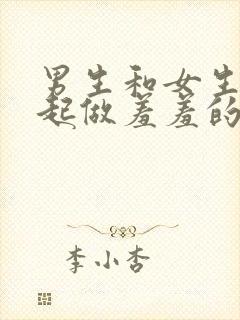 男生和女生
起做羞羞的
李小杏